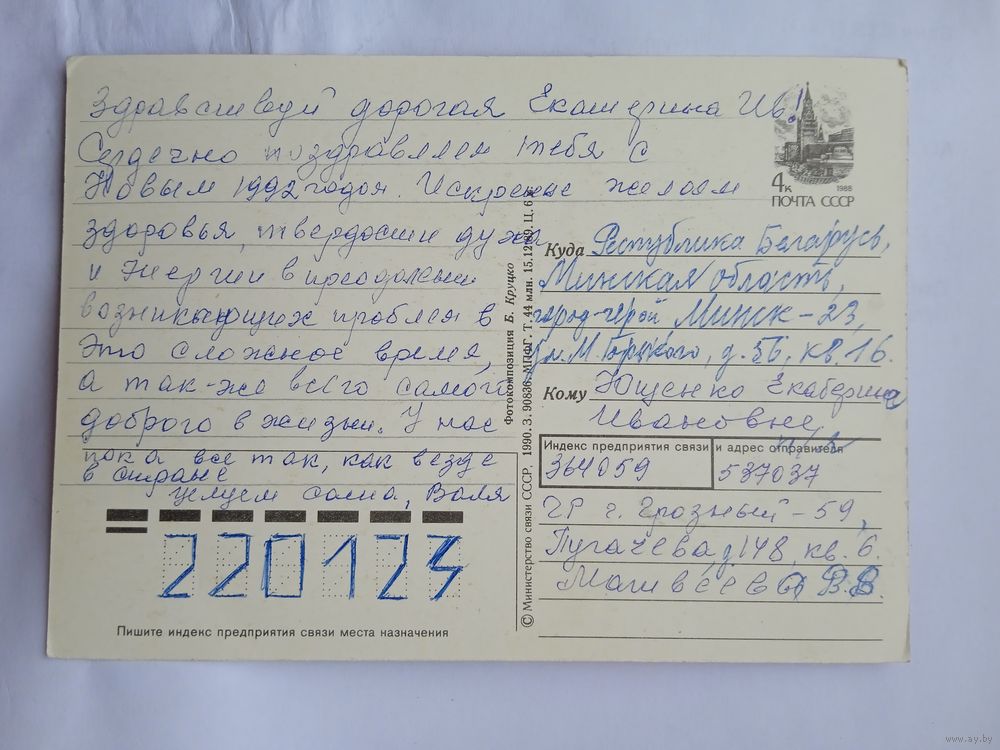 Здравствуй дорогая Екатерина Ив!
Сердечно поздравляем тебя с
Новым 1992 годом. Искренне желаем
здоровья, твердости духа
и энергии в преодолении
возникающих проблем в
это сложное время,
а так-же всего самого
доброго в жизни. У нас
пока все так, как везде
в стране
Целуем Валя
4к
1988
ПОЧТА СССР
Куда Республика Беларусь,
Минская область,
город-герой Минск-23,
ул. М. Горького, д. 56, кв. 16.
Кому Ющенко Екатерина
Ивановне
Индекс предприятия связи и адрес отправителя
364059 537037
ЧР г. Грозный-59,
Пугачева, д 148, кв. 6.
Матвеева В.В.
220123
Пишите индекс предприятия связи места назначения
Фотокомпозиция Б. Круцко
© Министерство связи СССР. 1990. З. 90836. МПФГ. Т. 44 млн. 15.12.89. Ц. 6 к.
www.ay.by